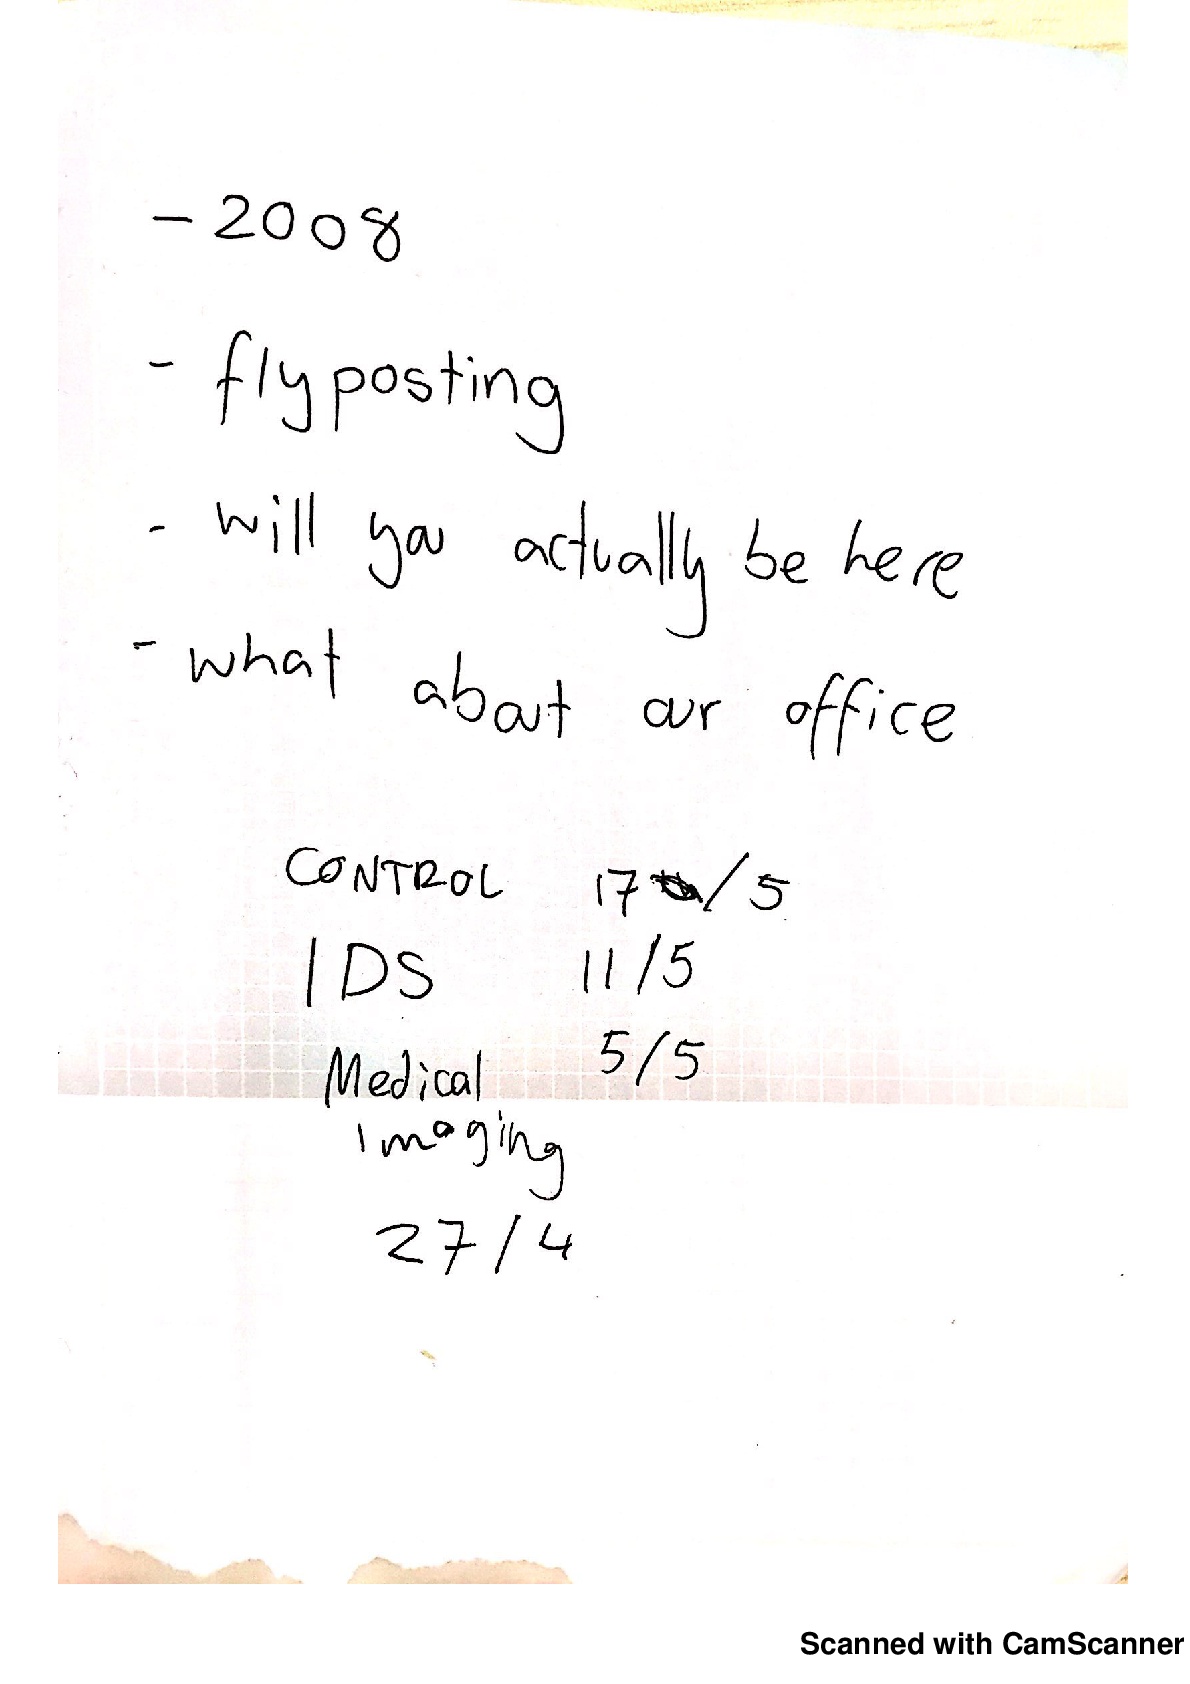 - 2008
- flyposting
- will you actually be here
- what about our office
CONTROL 17 /5
IDS 11/5
Medical 5/5
imaging
27/4
Scanned with CamScanner